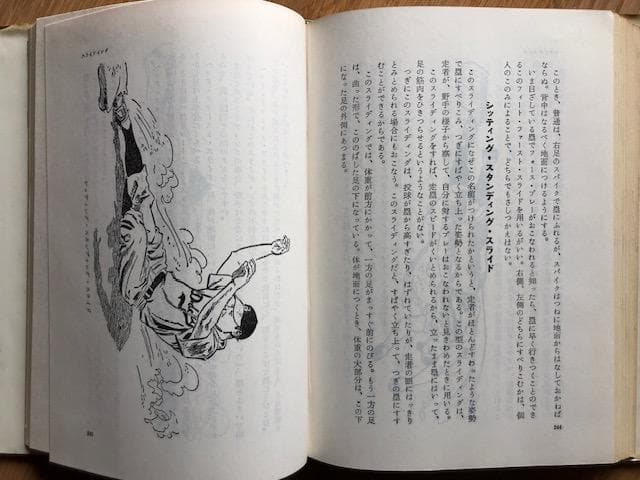 このとき、普通は、右足のスパイクで塁にふれるが、スパイクはつねに地面からはなしておかねば
ならぬ。背中はなるべく地面につけるようにする。
いま目ざしている塁でフォース・プレーがおこなわれると知ったら、塁に早く行きつくことのでき
るこのフィート・ファースト・スライドを用いるがいい。右側、左側のどちらにすべりこむかは、個
人のこのみによることで、どちらでもさしつかえはない。
シッティング・スタンディング・スライド
このスライディングになぜこの名前がつけられたかというと、走者がほとんどすわったような姿勢
で塁にすべりこみ、つぎにすばやく立ち上った姿勢となるからである。この型のスライディングは、
走者が、野手の様子から察して、自分に対するプレーはおこなわれないと見きわめたときに用いる。
このスライディングをすれば、走塁のスピードがくいとめられるから、立ったまま塁にはいって、
足の筋肉をひきつらせるというようなことがない。
つぎにこのスライディングは、投球が塁から高すぎたり、はずれていたりが、走者の眼にはっきり
とみとめられる場合にもおこなう。このスライディングだと、すばやく立ち上って、つぎの塁にすす
むことができるからである。
このスライディングでは、体重が前方にかかって、一方の足がまっすぐ前にのびる。もう一方の足
は、曲った形で、こののばした足の下になっている。体が地面につくとき、体重の大部分は、この下
になった足の外側にあつまる。
244
スライディング
245